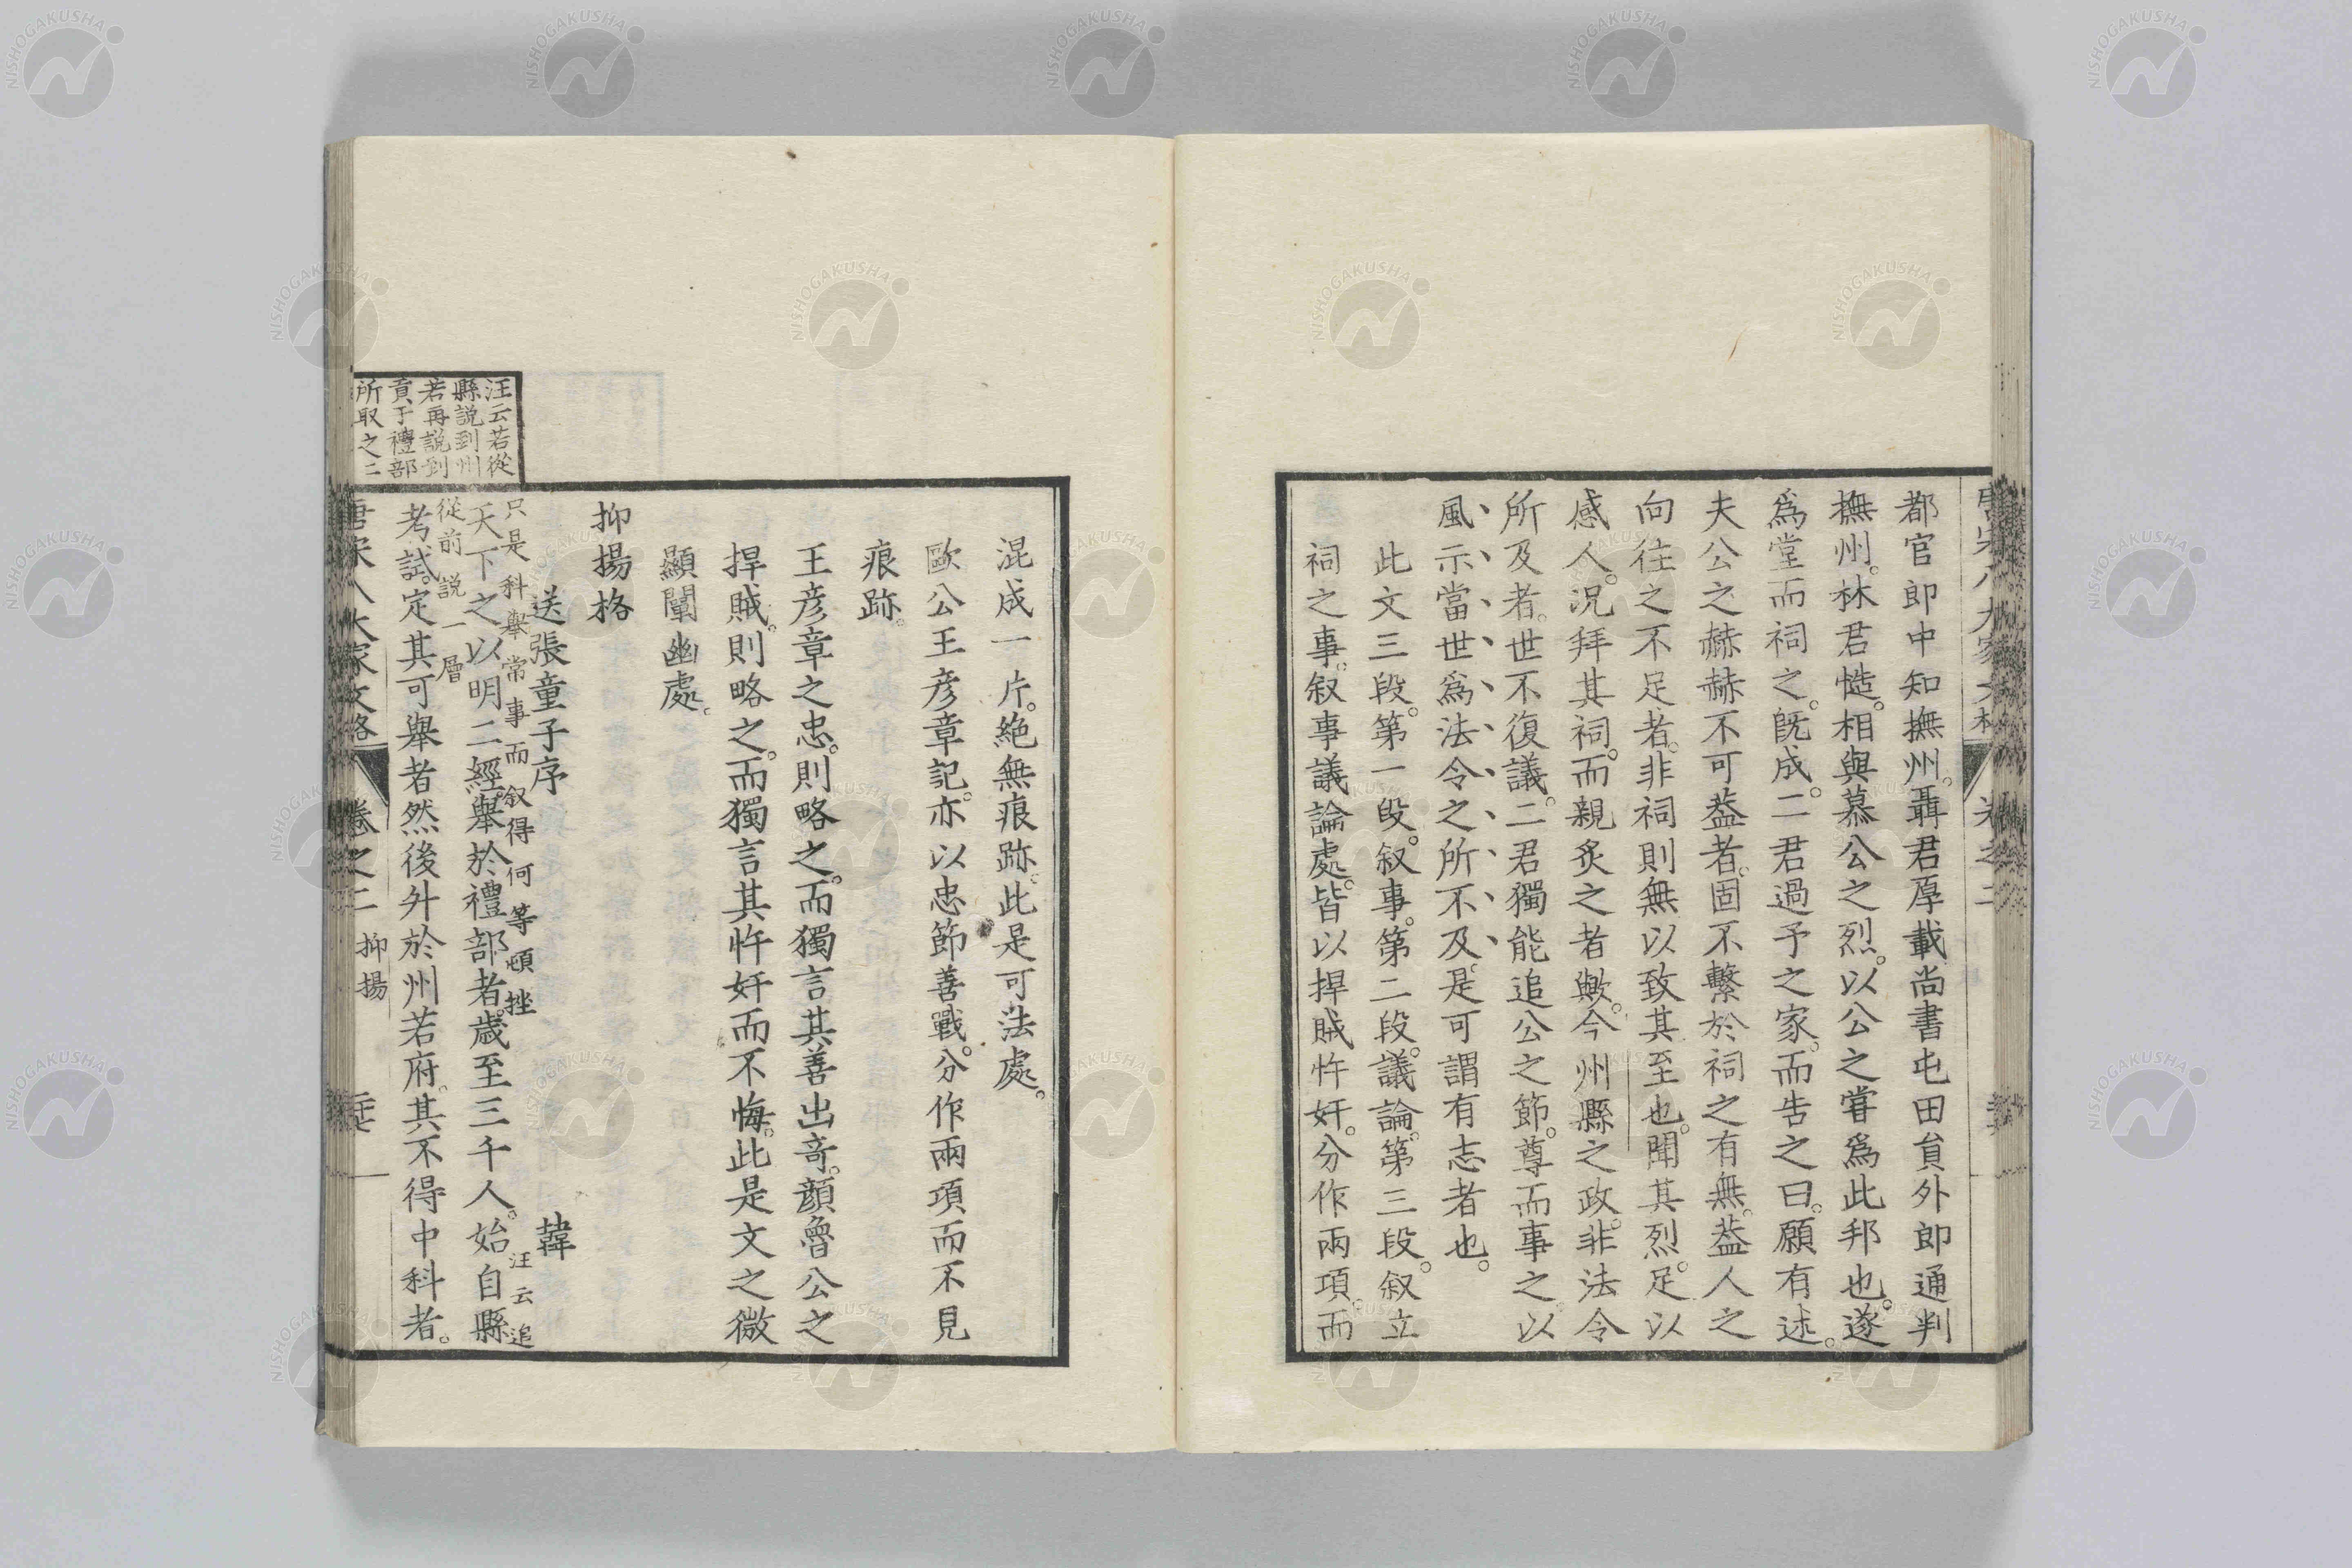 都官郎中知撫州。聶君厚載尚書屯田貟外郎通判
撫州。林君慥。相與慕公之烈。以公之甞爲此邦也。遂
爲堂而祠之。旣成。二君過予之家。而告之曰。願有述。
夫公之赫赫不可葢者。固不繫於祠之有無。葢人之
向往之不足者。非祠則無以致其至也。聞其烈。足以
感人。況拜其祠。而親炙之者歟。今州縣之政。非法令
所及者。世不復議。二君獨能追公之節。尊而事之。以
風示當世爲法令之所不及。是可謂有志者也。
此文三段。第一段。叙事。第二段。議論。第三段。叙立
祠之事。叙事議論處。皆以捍賊忤奸。分作兩項。而
混成一片。絶無痕跡。此是可法處。
歐公王彦章記。亦以忠節善戰。分作兩項而不見
痕跡。
王彦章之忠。則略之。而獨言其善出奇。顔魯公之
捍賊。則略之。而獨言其忤奸而不悔。此是文之微
顯闡幽處。
抑揚格
送張童子序 韓
只是科舉常事而叙得何等頓挫 汪云追
天下之以明二經。舉於禮部者。歳至三千人。始自縣
從前説一層
考試。定其可舉者然後升於州若府。其不得中科者。
唐宋八大家文格 卷之二 抑揚
汪云若從
縣説到州
若再説到
貢于禮部
所取之二
NISHOGAKUSHA